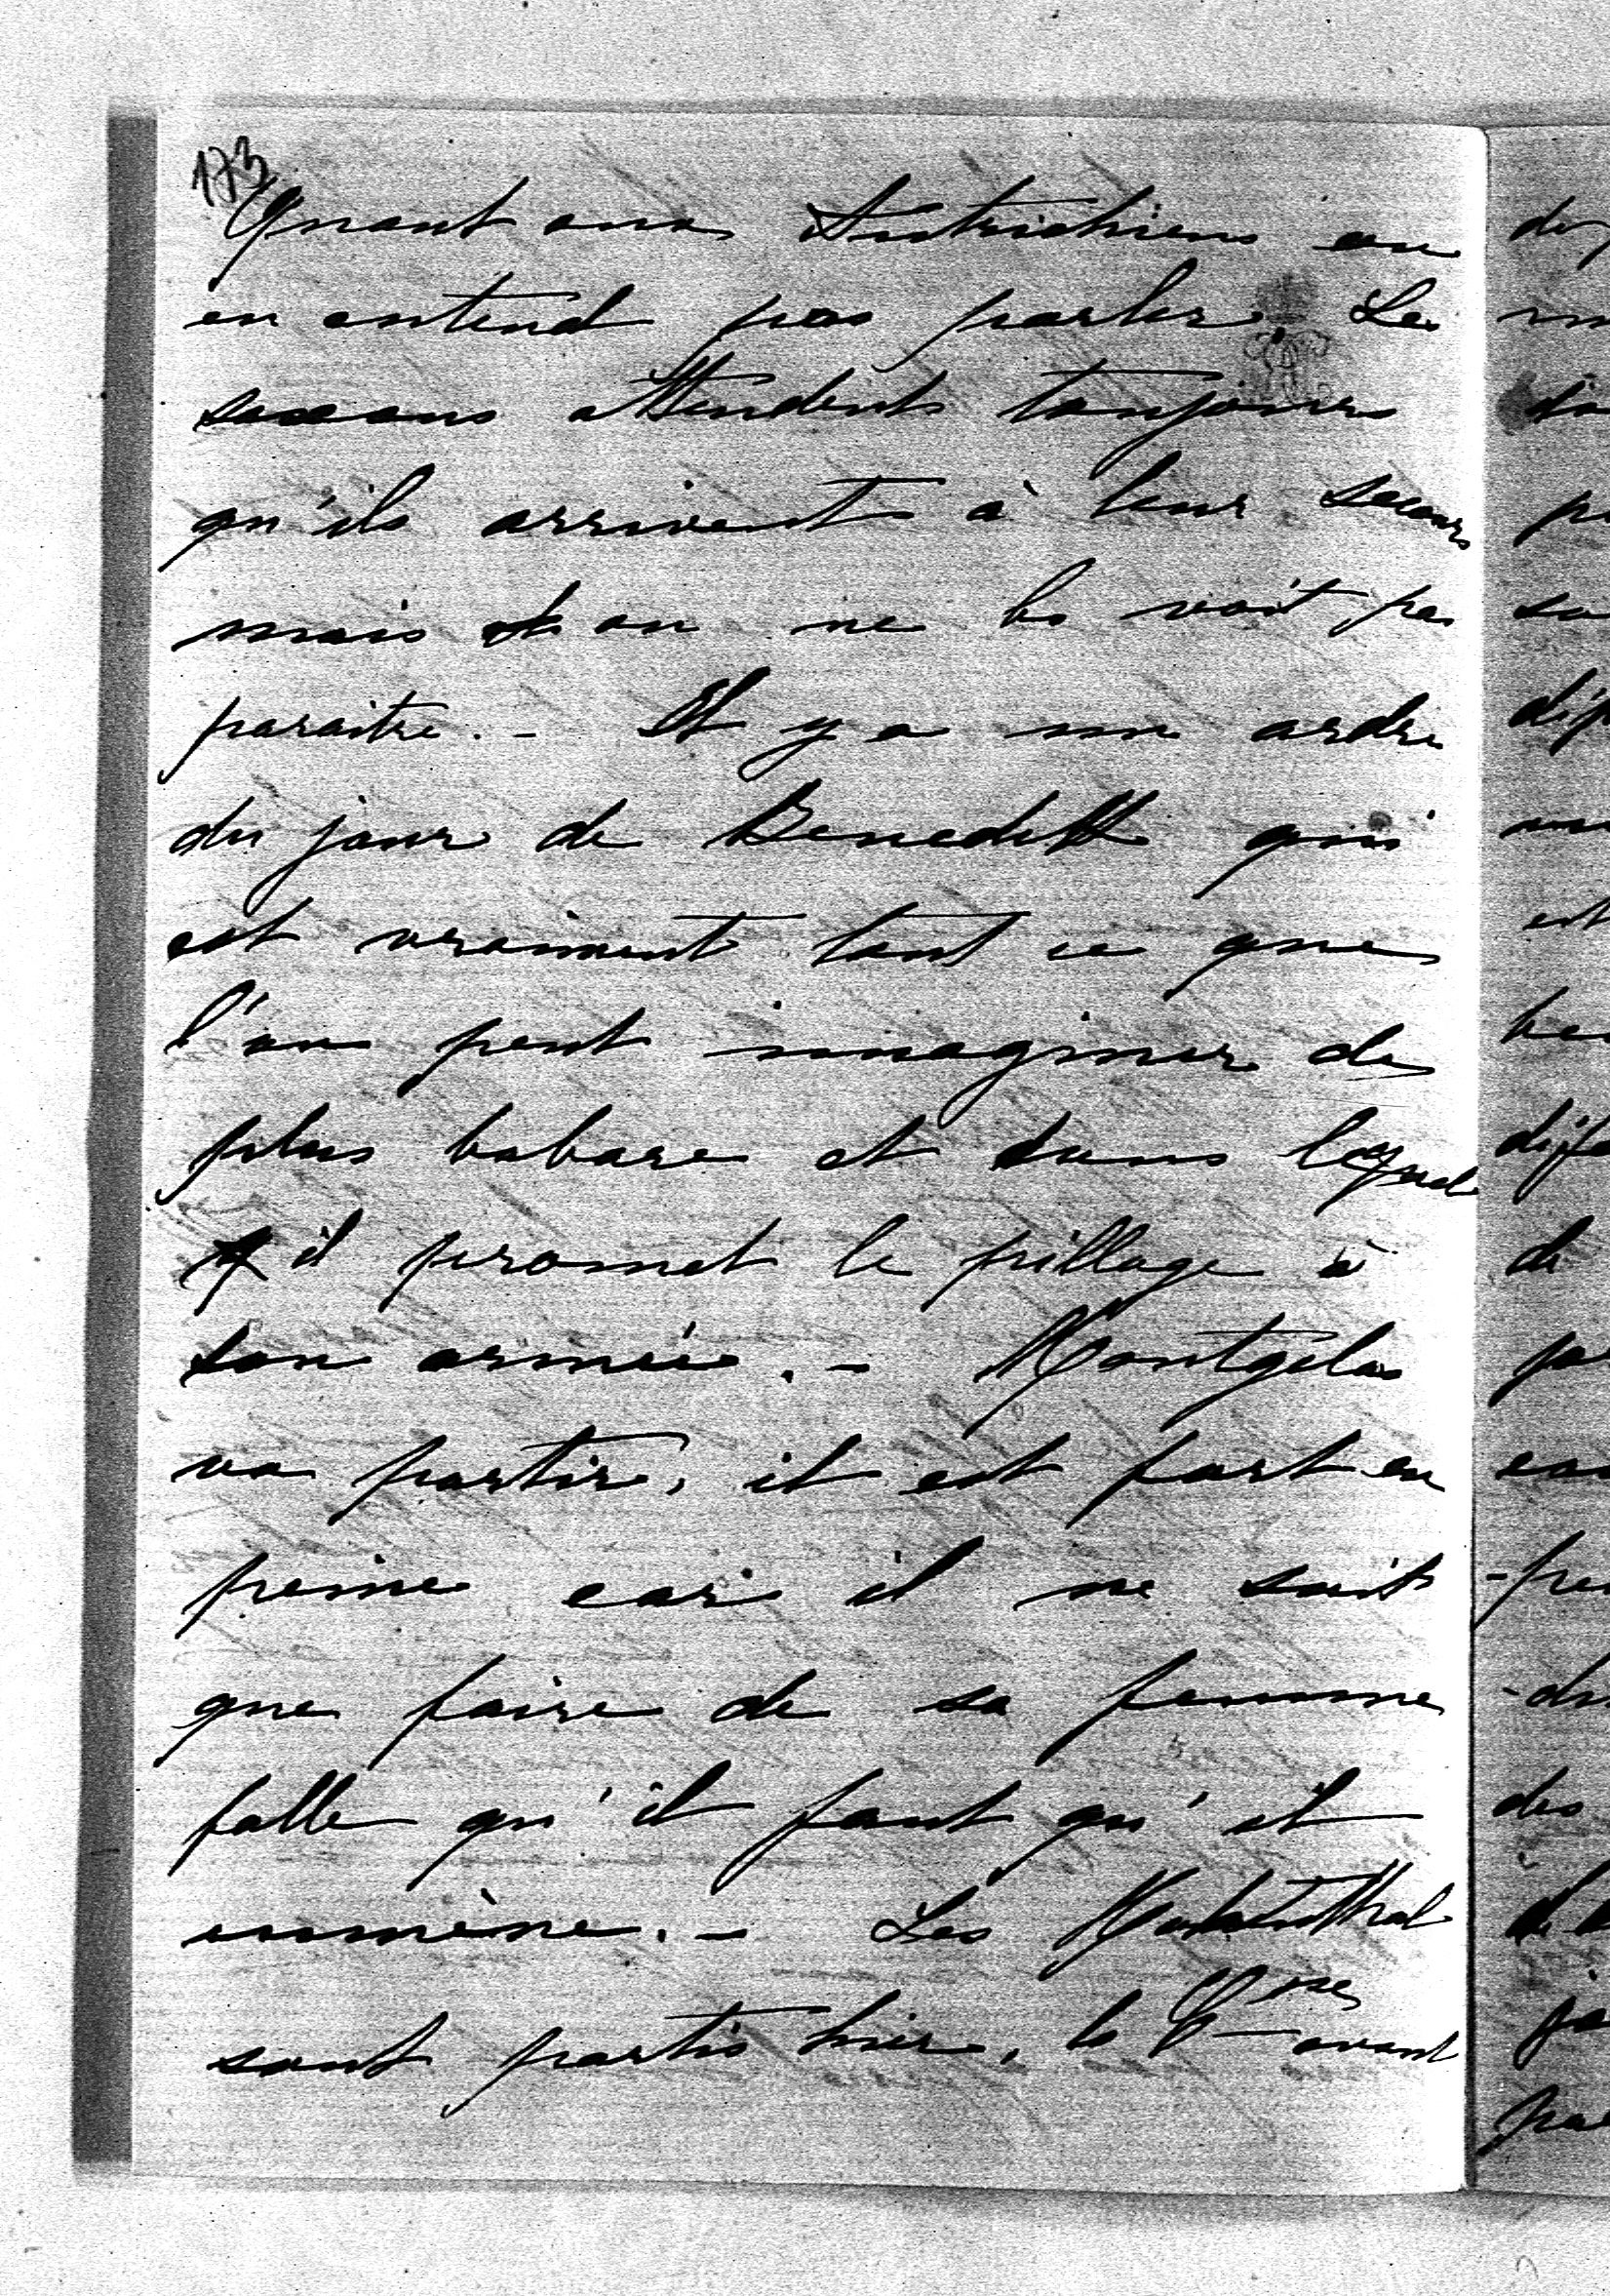 173
Quant aux Autrichiens on
en entend pas parler. Les
saxons attendent toujours
qu'ils arrivent à leur secours
mais on ne les voit pas
paraitre. - Il y a un ordre
du jour de Benedett qui
est vraiment tout ce que
l'on peut immaginer de
plus babare et dans lequel
il promet le pillage à
son armée. - Montgelas
va partir, il est fort en
peine car il ne sait
que faire de sa femme
folle qu'il faut qu'il
emmène. - Les
sont partis hier, la avant